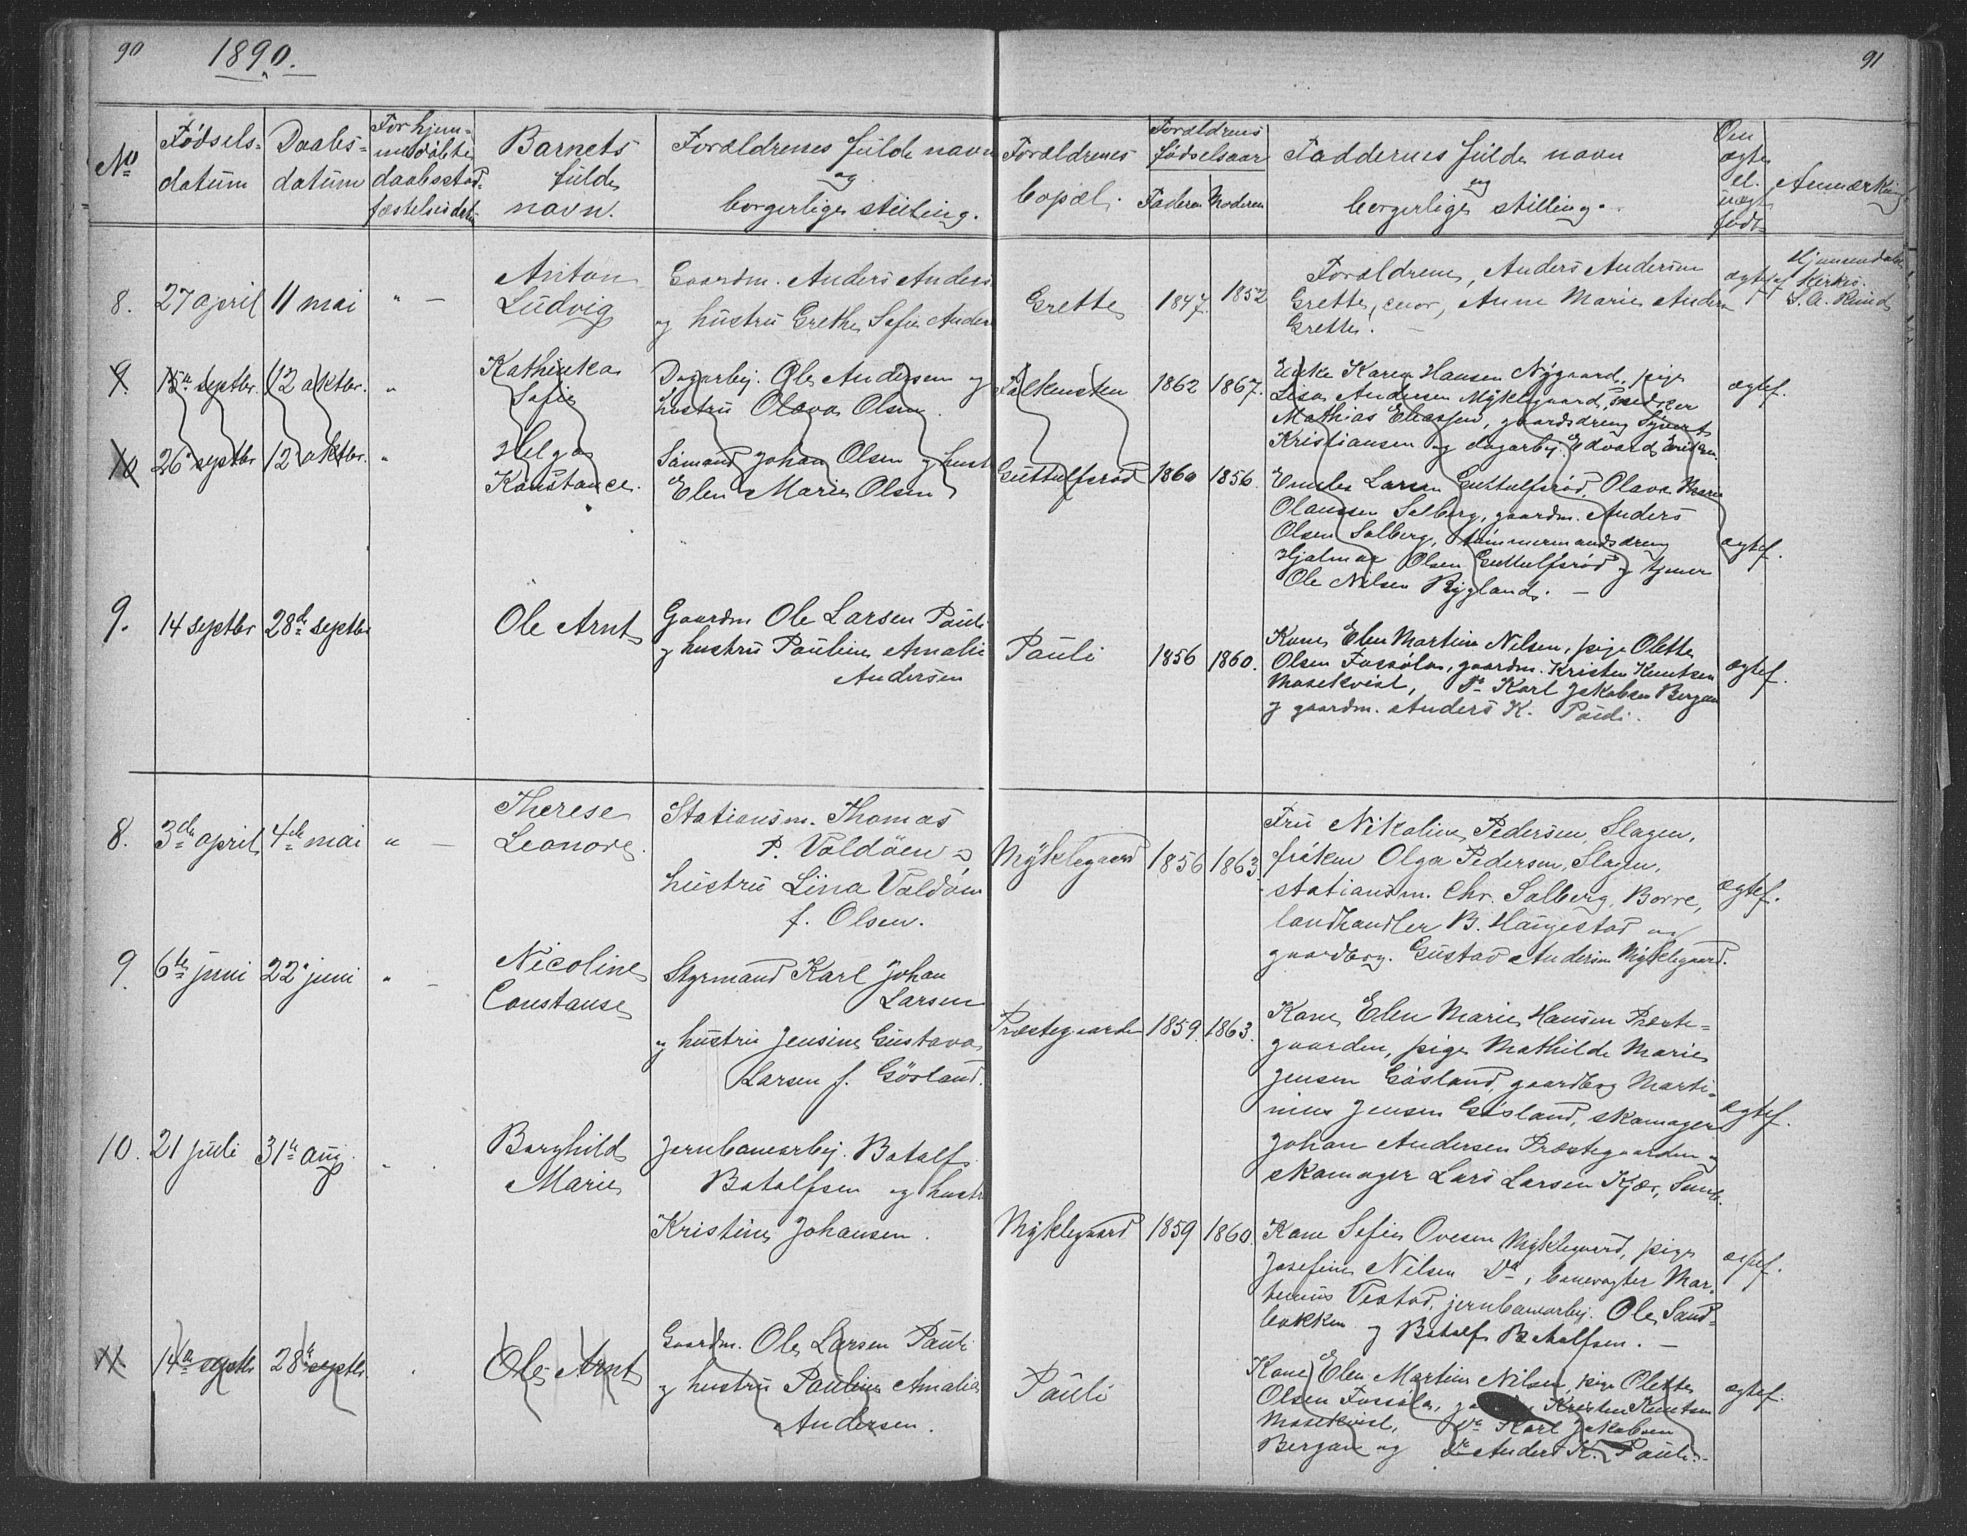 90
1890.
91
No
Fødsels-
datum
Daabs-
datum
For hjem-
medøbte
daabsstad.
Barnets
fulde
navn.
Forældrenes fulde navn
og
borgerlige stilling.
Forældrenes
bopæl.
Forældrenes
fødselsaar
Faderen Moderen
Faddernes fulde navn
og
borgerlige stilling.
Om
ægte
el.
uægte
født
Anmærkning
8. 27 april 11 mai " —
Anton
Ludvig
Gaardm. Anders Anders
og hustru Grethe Sofie Anders
Grette 1847. 1852
Forældrene, Anders Andersen
Grette, Anne Marie Anders
Grette. —
ægtef.
Kirke.
9. 15de septbr. 12 oktbr. "
Kathinka
Sofie
Dagarbej. Ole Andersen og
hustru Olava Olsen.
Falkensten 1862 1867.
Enke Karen Hansen Nygaard, pige
Lisa Andersen Myklegaard, snedker
Mathias Eliassen, gaardsdreng Syvert
Kristiansen og dagarbej. Edvard Eriksen.
ægtef.
10 26 septbr 12 oktbr. "
Helga
Konstance.
Sømand Johan Olsen og hust
Elen Marie Olsen
Guttulfsrød 1860 1856.
Emilie Larsen Guttulfsrød, Olava Marie
Olaussen Solberg, gaardm. Anders
Olsen Solberg, tømmermandsdreng
Hjalmar Olsen Guttulfsrød og tjener
Ole Nilsen Rygland. —
ægtef.
9. 14 septbr 28de septbr
Ole Arnt
Gaardm Ole Larsen Pauli
og hustru Pauline Amalie
Andersen
Pauli 1856 1860.
Kone Elen Martine Nilsen, pige Olette
Olsen Fossøla, gaardm. Kristen Knutsen
Masekvist, Do Karl Jakobsen Bergan
og gaardm. Anders K. Pauli.
ægtef.
8. 3de april 4de mai " —
Therese
Leonore.
Stationsm. Thomas
P. Voldøen og
hustru Lina Voldøen
f. Olsen.
Myklegaard 1856 1863.
Fru Nikoline Pedersen, Slagen,
frøken Olga Pedersen, Slagen,
stationsm. Chr. Solberg, Borre,
landhandler B. Haugestad og
gaardbrg. Gustav Andersen Myklegaard.
ægtef.
9. 6te juni 22 juni " —
Nicoline
Constanse
Styrmand Karl Johan
Larsen
og hustru Jensine Gustava
Larsen f. Gösland.
Præstegaarden 1859. 1863.
Kone Elen Marie Hansen Præste-
gaarden, pige Mathilde Marie
Jensen Gösland, gaardbrg Marti-
nius Jensen Gösland, skomager
Johan Andersen Præstegaarden og
skomager Lars Larsen Kjær, Semb.
ægtef.
10. 21 juli 31te aug. " .
Borghild
Marie
Jernbanearbej. Botolf
Botolfsen og hustr
Kristine Johansen.
Myklegaard 1859 1860.
Kone Sofie Ovesen Myklegaard, pige
Josefine Nilsen Do, banevogter Mar-
tinius Vestad, jernbanearbej. Ole Sand-
bakken og Botolf Botolfsen. —
ægtef.
11. 14de septbr 28de septbr. .
Ole Arnt
Gaardm. Ole Larsen Pauli
og hustru Pauline Amalie
Andersen.
Pauli
Kone Elen Martine Nilsen, pige Olette
Olsen Fossøla, Kristen Knutsen
Masekvist, Do Karl Jakobsen
Bergan og Do Anders K. Pauli.
ægtef.